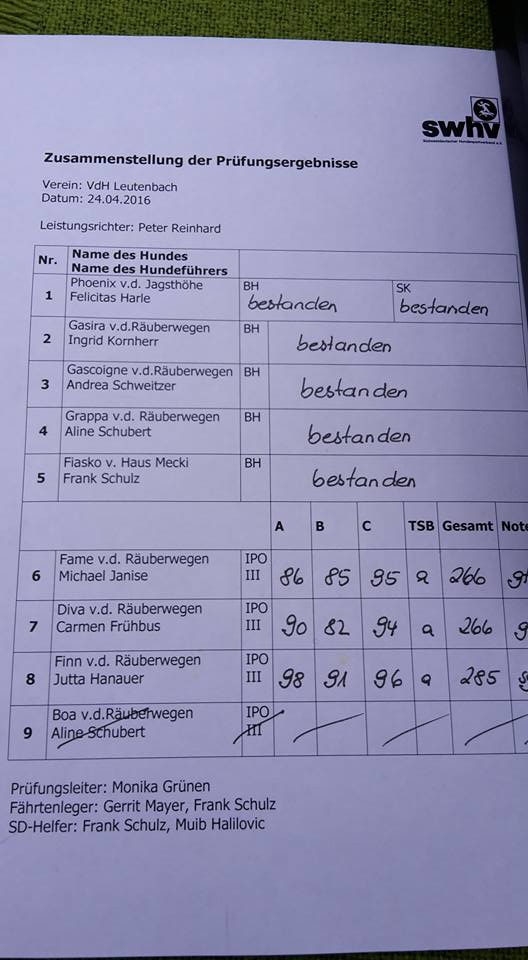 swhv
Südwestdeutscher Hundesportverband e.V.
Zusammenstellung der Prüfungsergebnisse
Verein: VdH Leutenbach
Datum: 24.04.2016
Leistungsrichter: Peter Reinhard
Nr. Name des Hundes
Name des Hundeführers
1 Phoenix v.d. Jagsthöhe BH SK
Felicitas Harle bestanden bestanden
2 Gasira v.d.Räuberwegen BH bestanden
Ingrid Kornherr
3 Gascoigne v.d.Räuberwegen BH bestanden
Andrea Schweitzer
4 Grappa v.d. Räuberwegen BH bestanden
Aline Schubert
5 Fiasko v. Haus Mecki BH bestanden
Frank Schulz
A B C TSB Gesamt Note
6 Fame v.d. Räuberwegen IPO
Michael Janise III 86 85 95 a 266
7 Diva v.d. Räuberwegen IPO
Carmen Frühbus III 90 82 94 a 266
8 Finn v.d. Räuberwegen IPO
Jutta Hanauer III 98 91 96 a 285
9 Boa v.d.Räuberwegen IPO
Aline Schubert III
Prüfungsleiter: Monika Grünen
Fährtenleger: Gerrit Mayer, Frank Schulz
SD-Helfer: Frank Schulz, Muib Halilovic